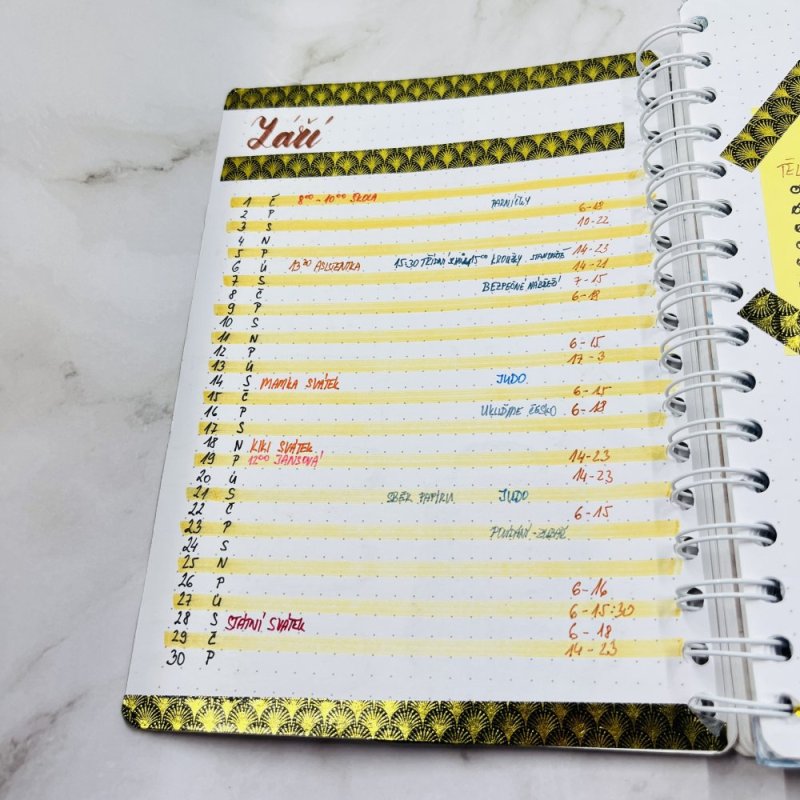 Září
1 Č 8⁰⁰-10⁰⁰ ŠKOLA PARNÍČKY
2 P 6-18
3 S 10-22
4 N
5 P 14-23
6 Ú 13³⁰ 15:30 TŘÍDNÍ 15⁰⁰ KROUŽKY 14-21
7 S BEZPEČNÉ NÁBŘEŽÍ 7-15
8 Č 6-18
9 P
10 S
11 N
12 P 6-15
13 Ú 17-3
14 S MAMKA SVÁTEK JUDO
15 Č 6-15
16 P UKLIĎME ČESKO 6-18
17 S
18 N KIKI SVÁTEK
19 P 12⁰⁰ JANSOVÁ! 14-23
20 Ú 14-23
21 S SBĚR PAPÍRU JUDO
22 Č 6-15
23 P
24 S
25 N
26 P 6-16
27 Ú 6-15:30
28 S STÁTNÍ SVÁTEK 6-18
29 Č 14-23
30 P